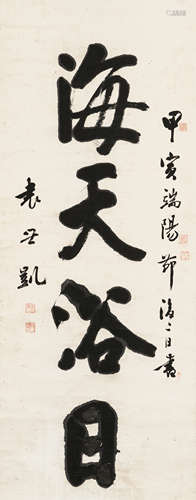 海天浴日
甲寅端陽節後二日書
袁世凱